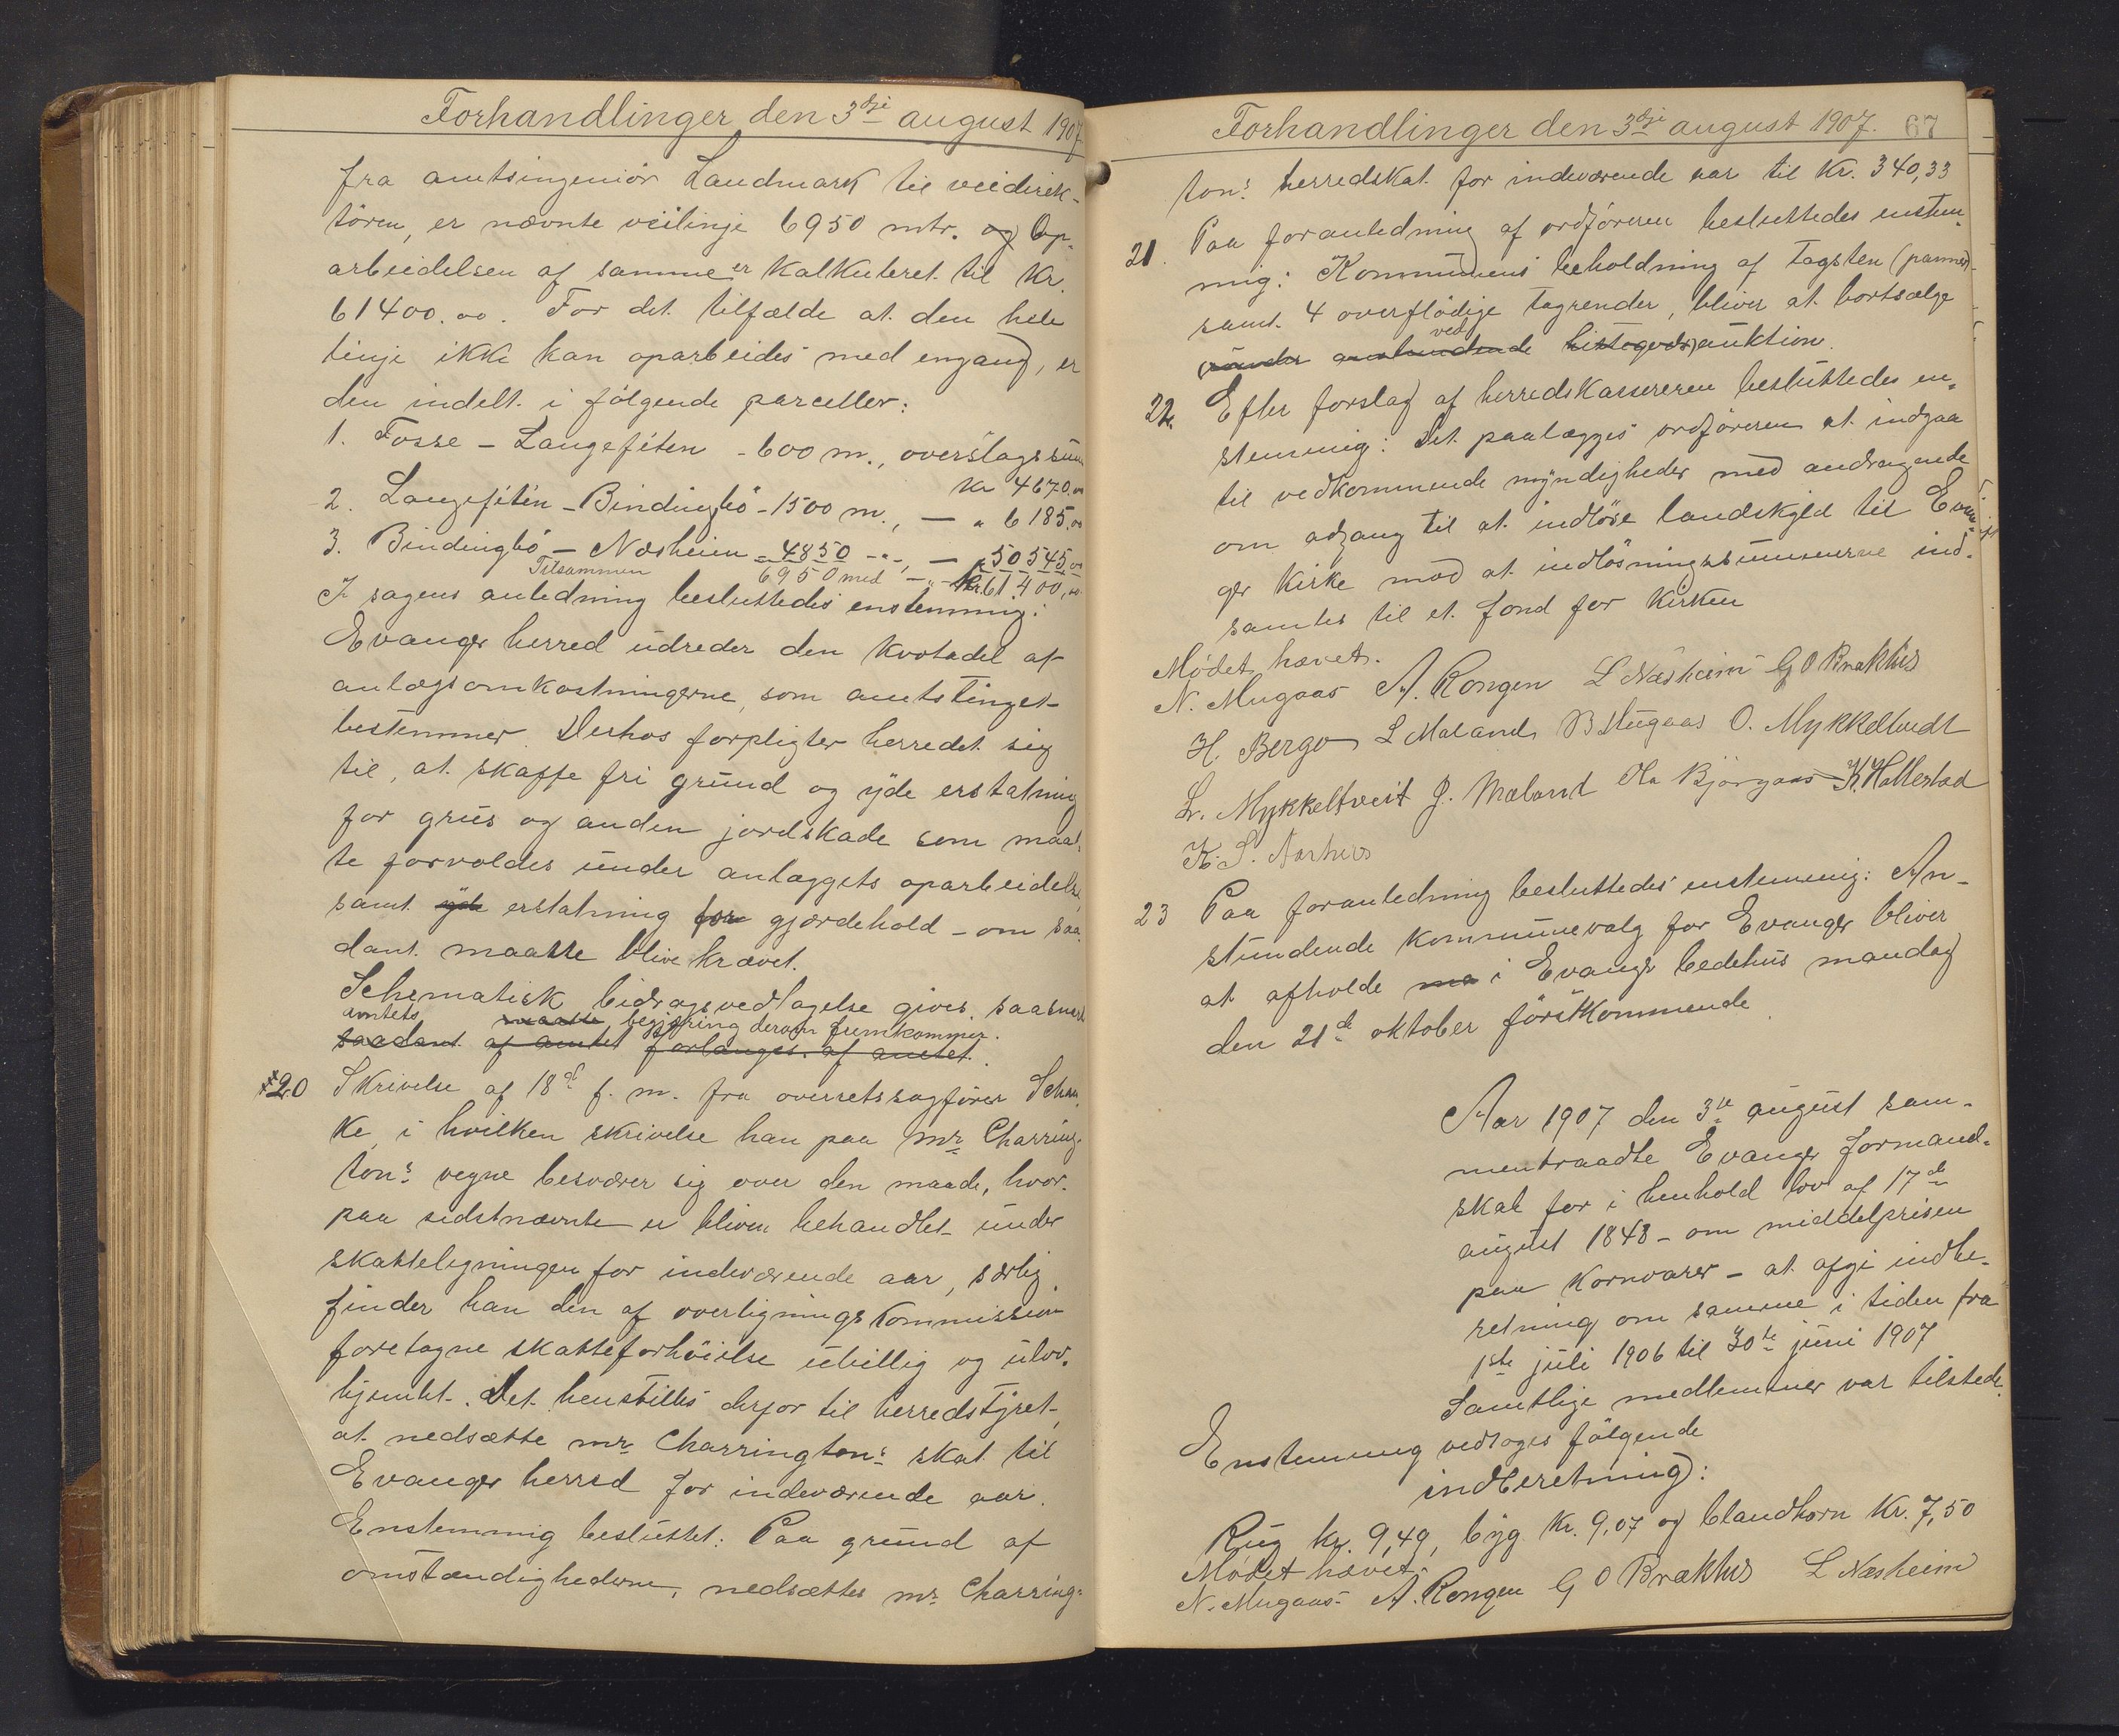 Forhandlinger den 3dje august 1907
fra amtsingeniør Landmark til veidirek-
tören, er nævnte veilinje 6950 mtr. og Op-
arbeidelsen af samme er kalkuleret til Kr.
61400.00. For det tilfælde at den hele
linje ikke kan oparbeides med engang, er
den indelt i fölgende parceller:
1. Fosse - Langefiten - 600 m., overslagssum
Kr 4670.00
2. Langefiten - Bindingbö - 1500 m., — " 6185.00
3. Bindingbö - Næsheim - 4850 -"-, — " 50545,00
Tilsammen 6950 med -"- Kr. 61.400,00
I sagens anledning besluttedes enstemmig:
Evanger herred udreder den kvotadel af
anlægsomkostningerne, som amtstinget
bestemmer. Derhos forpligter herredet sig
til, at skaffe fri grund og yde erstatning
for grus og anden jordskade som maat-
te forvoldes under anlæggets oparbeidelse,
samt yde erstatning for gjærdehold - om saa-
dant maatte blive krævet.
Schematisk bidragsvedtagelse gives, saasnart
amtets maatte begjæring derom fremkommer.
saadant af amtet forlanges af amtet.
20 Skrivelse af 18d f. m. fra overretssagfører Schan-
ke, i hvilken skrivelse han paa mr Charring-
tons vegne besværer sig over den maade, hvor-
paa sidstnævnte er bleven behandlet under
skatteligningen for indeværende aar, særlig
finder han den af overligningskommission
foretagne skatteforhöielse ubillig og ulov-
hjemlet. Det henstilles derfor til herredstyret,
at nedsætte mr Charringtons skat til
Evanger herred for indeværende aar.
Enstemmig besluttet: Paa grund af
omstændighederne, nedsættes mr Charring-
Forhandlinger den 3dje august 1907. 67
tons herredskat for indeværende aar til Kr. 340,33
21. Paa foranledning af ordföreren besluttedes enstem-
mig: Kommunens beholdning af tagsten (panner)
samt 4 overflödige tagrender, bliver at bortsælge
ved
under anstundende auktion.
22. Efter forslag af herredskassereren besluttedes en-
stemmig: Det paalægges ordföreren at indgaa
til vedkommende myndigheder med andragende
om adgang til at indlöse landskyld til Evan-
ger Kirke mod at indlösningssummerne ind-
samles til et fond for Kirken
Mödet hævet.
N. Mugaas A. Rongen L Næsheim G O Brakhus
H. Bergo L Mæland B Mugaas O. Mykkeltvedt
L. Mykkeltveit J. Mæland Ola Björgaas K. Hallestad
K. S. Aarhus
23 Paa foranledning besluttedes enstemmig: An-
stundende kommunevalg for Evanger bliver
at afholde ma i Evanger bedehus mandag
den 21de oktober förstkommende.
Aar 1907 den 3die august sam-
mentraadte Evanger formand-
skab for i henhold lov af 17de
august 1848 - om middelprisen
paa Kornvarer - at afgi indbe-
retning om samme i tiden fra
1ste juli 1906 til 30te juni 1907
Samtlige medlemmer var tilstede.
Enstemmig vedtoges fölgende
indberetning:
Rug kr. 9,49, byg kr. 9,07 og blandkorn Kr. 7,50
Mödet hævet.
N. Mugaas A. Rongen G O Brakhus L Næsheim